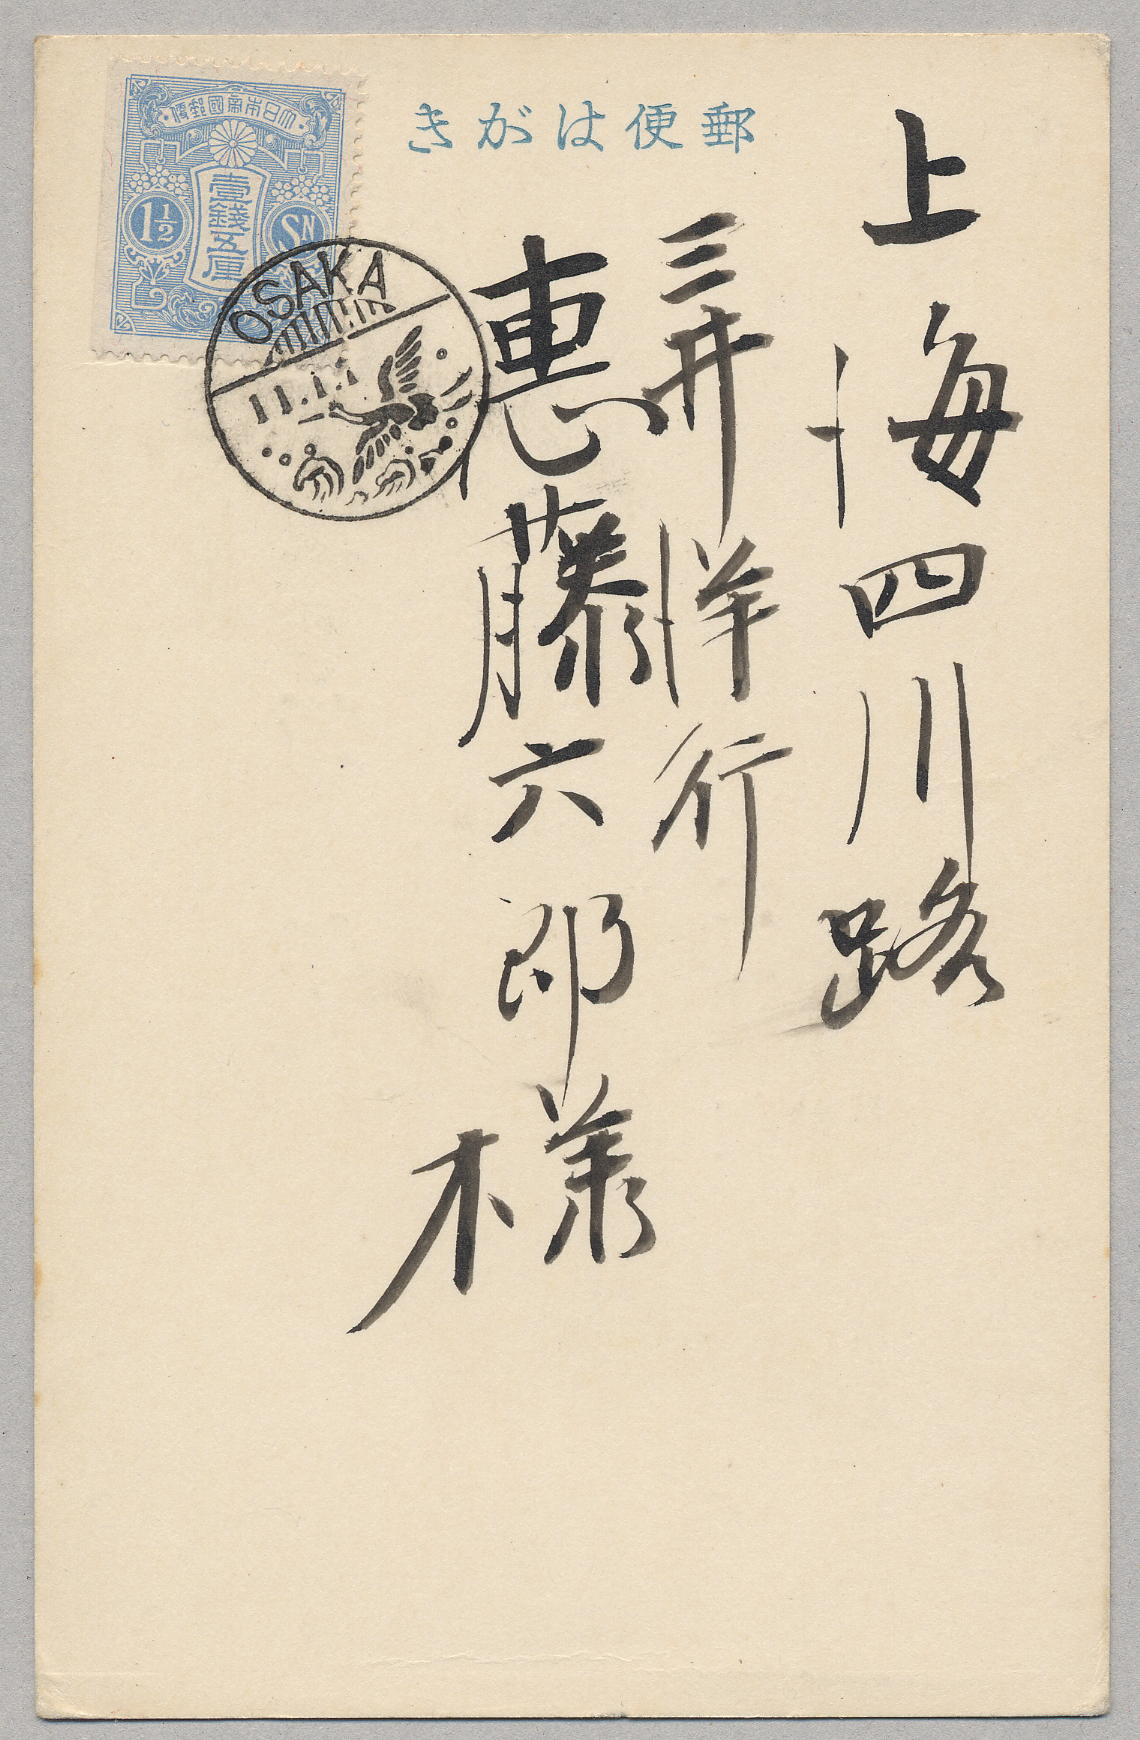 郵便はがき
大日本帝國郵便
壹錢五厘
1½ SN
OSAKA
11.1.1
上海四川路
三井洋行
恵藤六郎様